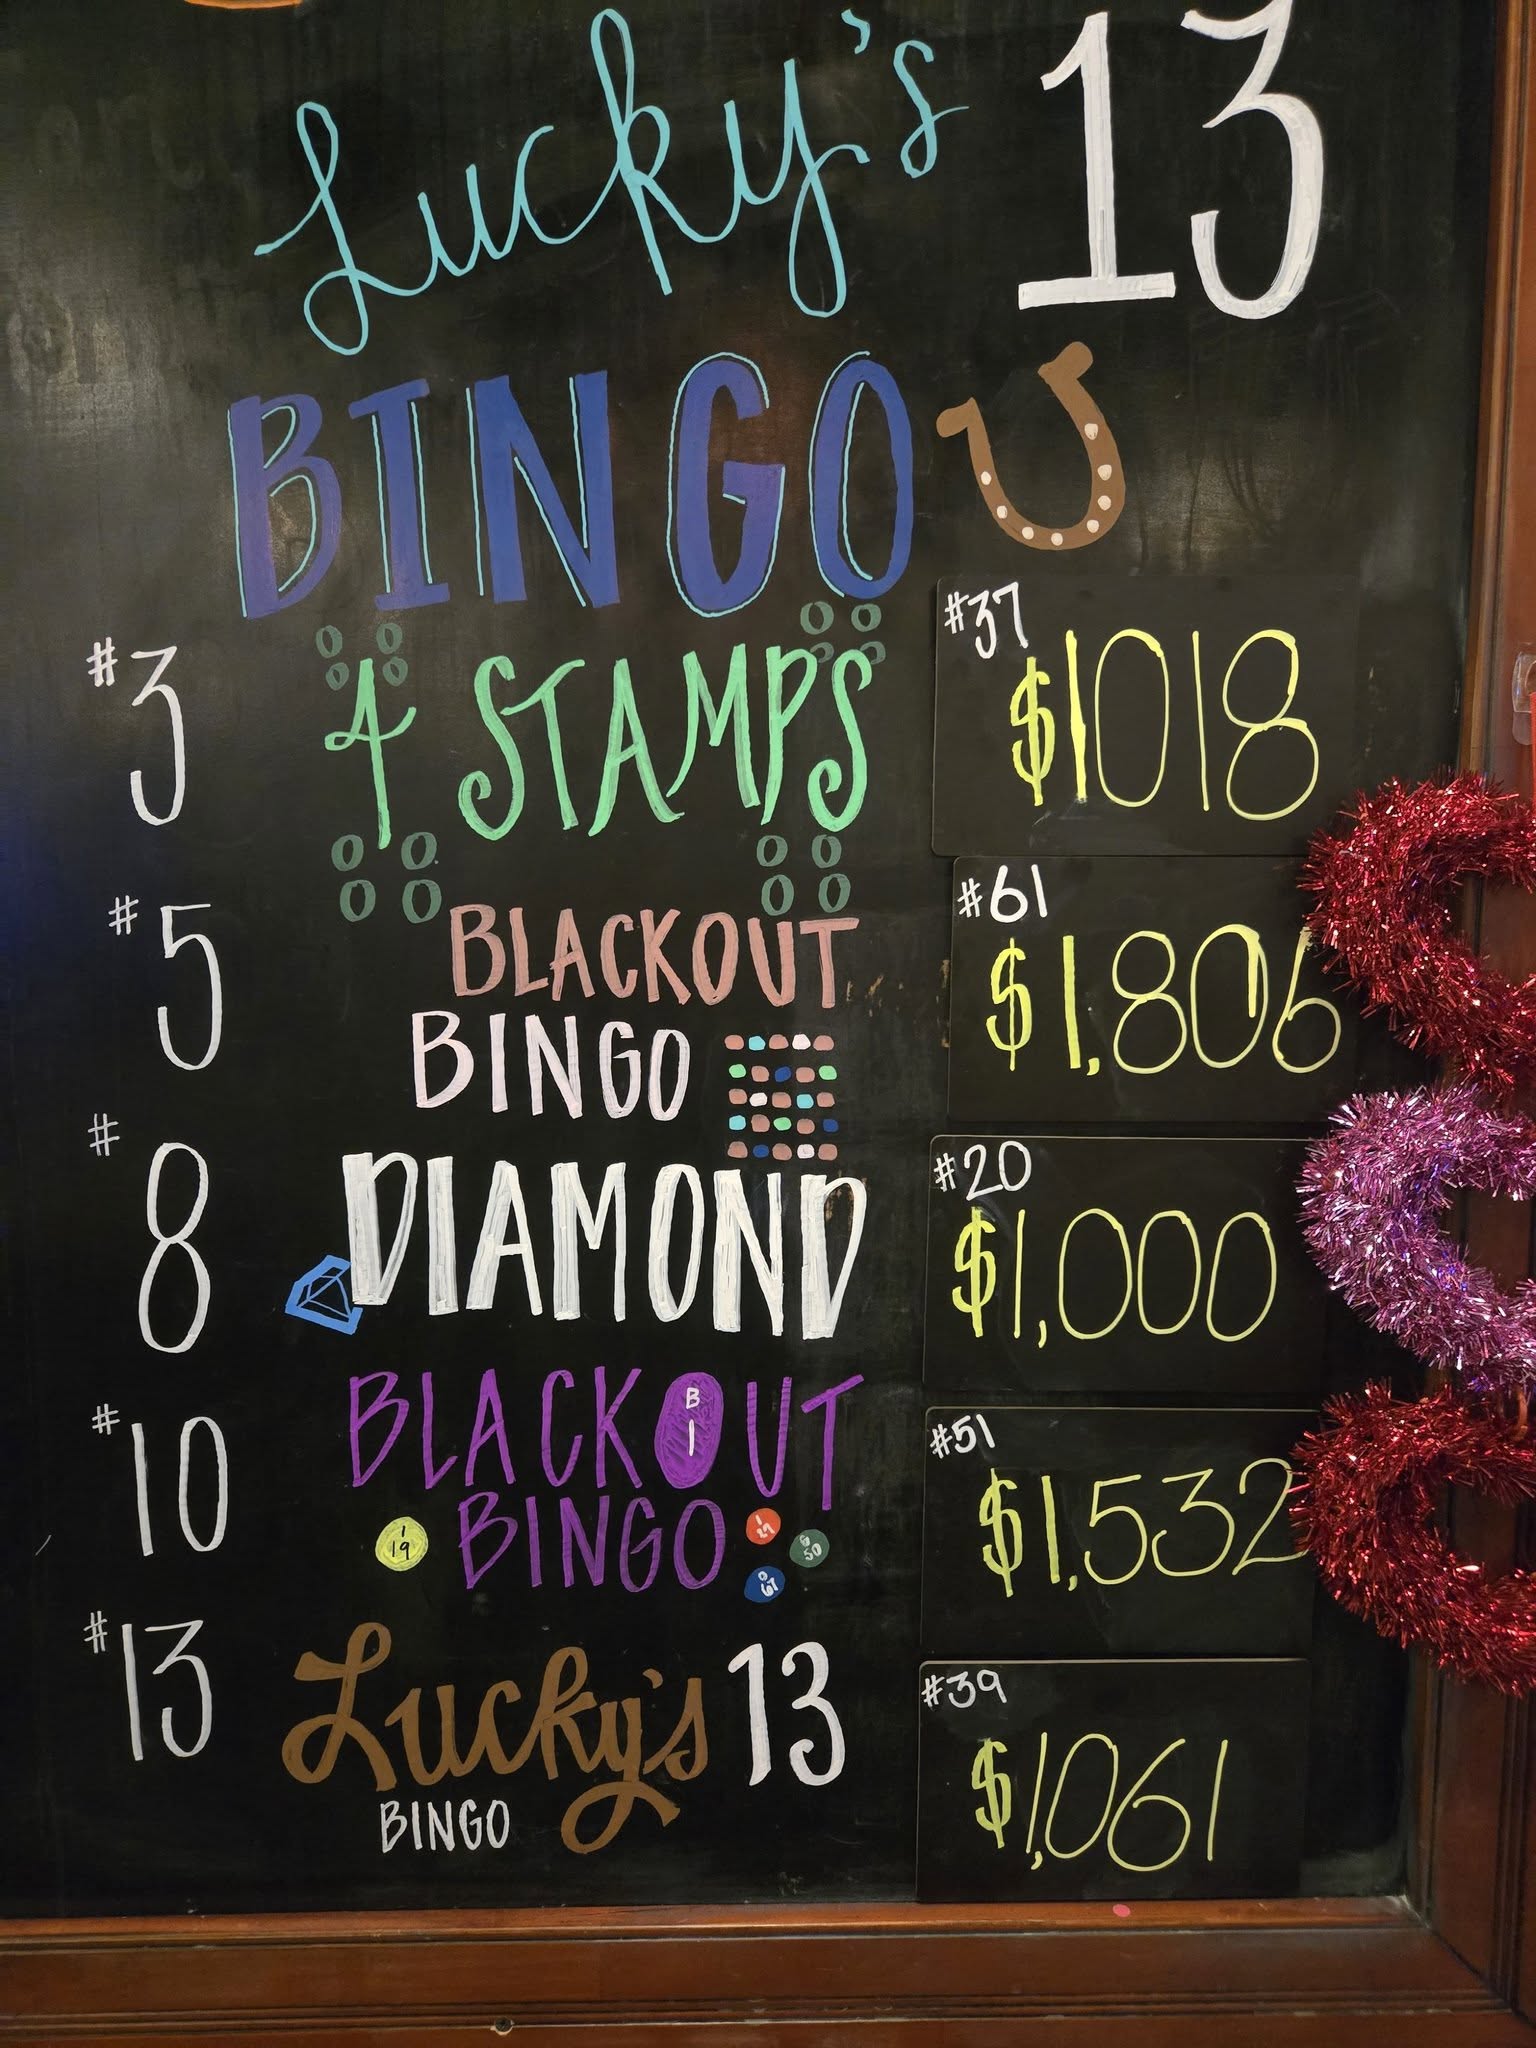 Lucky's 13
BINGO
#3 4 STAMPS #37 $1018
#5 BLACKOUT BINGO #61 $1,806
#8 DIAMOND #20 $1,000
#10 BLACKOUT BINGO #51 $1,532
B
1
1
19
1
29
G
50
O
67
#13 Lucky's 13 BINGO #39 $1,061